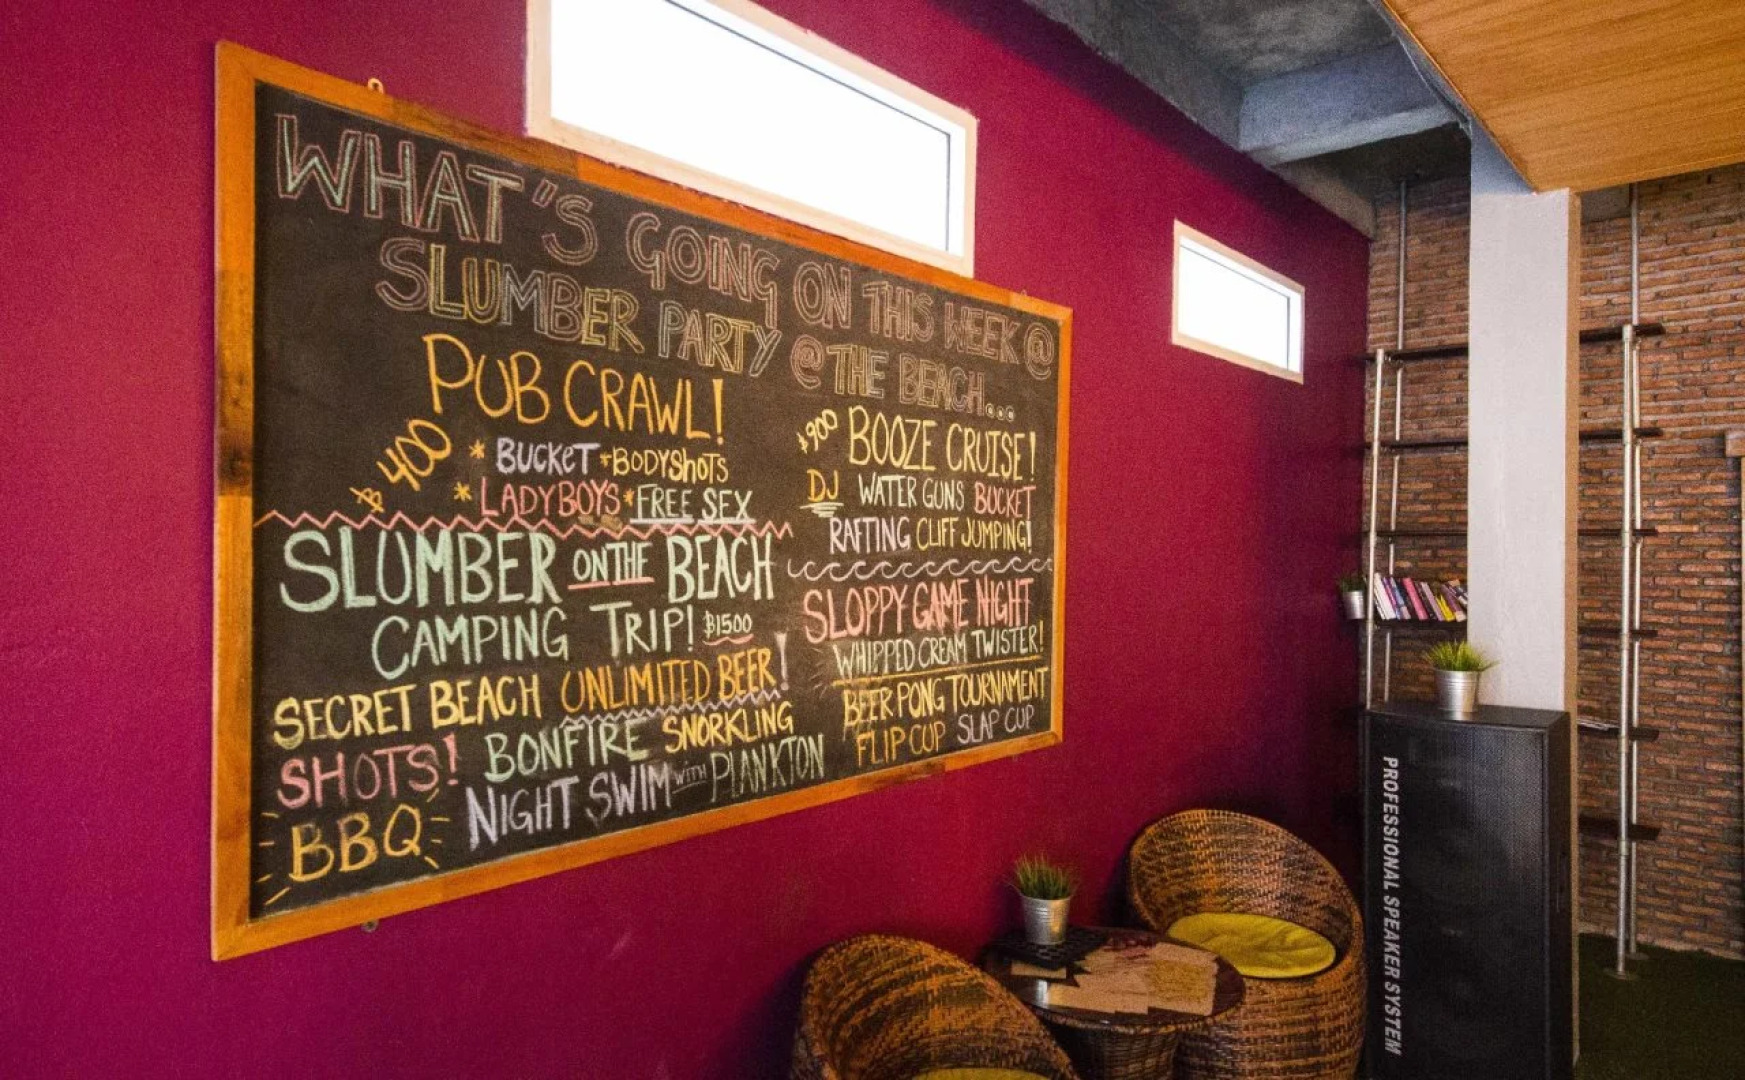 WHAT'S GOING ON THIS WEEK @
SLUMBER PARTY @ THE BEACH...
PUB CRAWL!
฿400
* BUCKET * BODYSHOTS
* LADYBOYS * FREE SEX
SLUMBER ON THE BEACH
CAMPING TRIP! ฿1500
SECRET BEACH UNLIMITED BEER!
SHOTS! BONFIRE SNORKLING
BBQ NIGHT SWIM WITH PLANKTON
฿900 BOOZE CRUISE!
DJ WATER GUNS BUCKET
RAFTING CLIFF JUMPING!
SLOPPY GAME NIGHT
WHIPPED CREAM TWISTER!
BEER PONG TOURNAMENT
FLIP CUP SLAP CUP
PROFESSIONAL SPEAKER SYSTEM